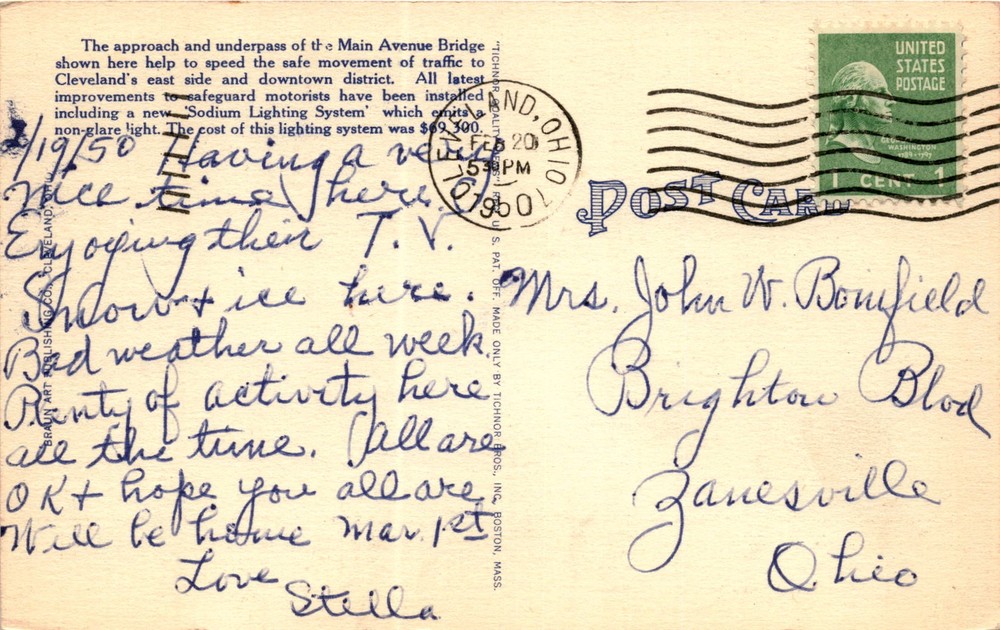 The approach and underpass of the Main Avenue Bridge
shown here help to speed the safe movement of traffic to
Cleveland's east side and downtown district. All latest
improvements to safeguard motorists have been installed
including a new 'Sodium Lighting System' which emits a
non-glare light. The cost of this lighting system was $69,300.
2/19/50 Having a very
nice time here.
Enjoying their T.V.
Snow + ice here.
Bad weather all week.
Plenty of activity here
all the time. All are
OK + hope you all are
Will be home Mar. 1st
Love
Stella
BRAUN ART PUBLISHING CO., CLEVELAND, OHIO
"TICHNOR QUALITY VIEWS" REG. U. S. PAT. OFF. MADE ONLY BY TICHNOR BROS., INC., BOSTON, MASS.
CLEVELAND, OHIO
FEB 20
5 30 PM
1950
7
UNITED
STATES
POSTAGE
GEORGE
WASHINGTON
1789-1797
1 CENT 1
POST CARD
Mrs. John W. Bonifield
Brighton Blvd
Zanesville
Ohio